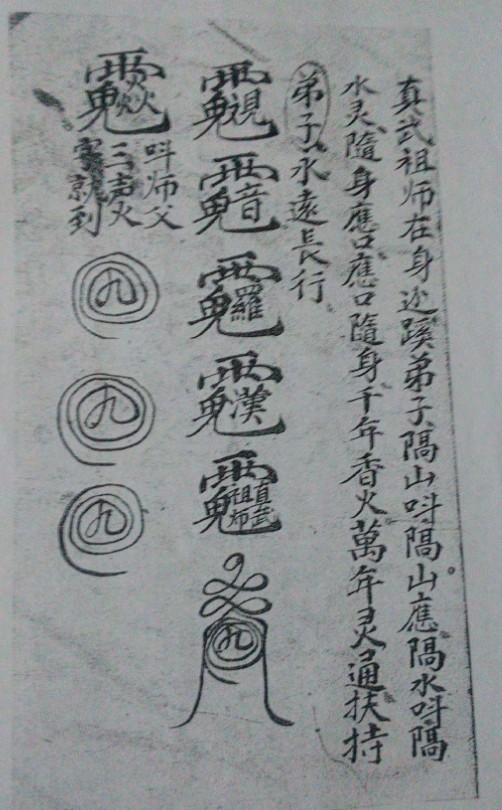 真武祖师在身边蹊弟子隔山呌隔山應隔水呌隔
水灵隨身應口應口隨身千年香火萬年灵通扶持
弟子永遠長行
視
音
羅
漢
真武祖师
九
呌师父
三声火
就到
九
九
九